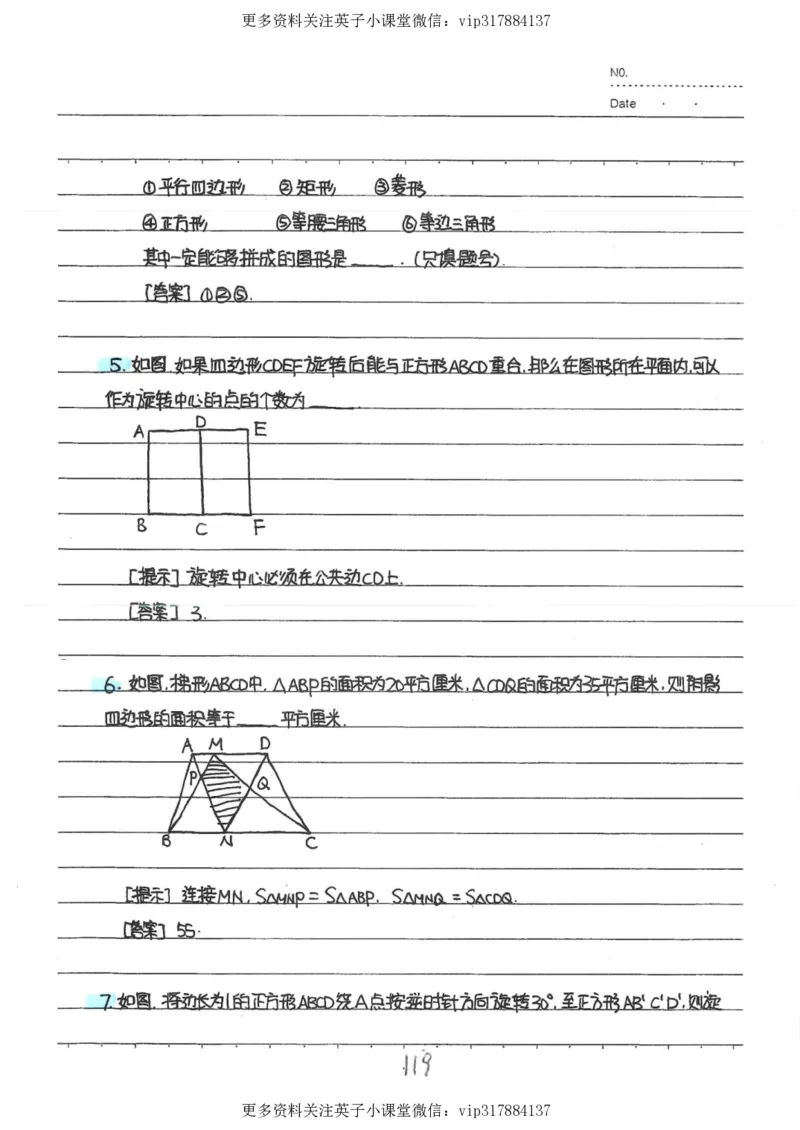 更多资料关注英子小课堂微信：vip317884137
NO.
Date
①平行四边形 ②矩形 ③菱形
④正方形 ⑤等腰三角形 ⑥等边三角形
其中一定能够拼成的图形是____.(只填题号).
[答案] ①②⑤.
5. 如图,如果四边形CDEF旋转后能与正方形ABCD重合,那么在图形所在平面内,可以
作为旋转中心的点的个数为____
A D E
B C F
[提示] 旋转中心必须在公共边CD上.
[答案] 3.
6. 如图,梯形ABCD中,△ABP的面积为20平方厘米,△CDQ的面积为35平方厘米,则阴影
四边形的面积等于____平方厘米.
A M D
P Q
B N C
[提示] 连接MN, S△MNP=S△ABP, S△MNQ=S△CDQ.
[答案] 55.
7. 如图,将边长为1的正方形ABCD绕A点按逆时针方向旋转30°,至正方形AB'C'D',则旋
119
更多资料关注英子小课堂微信：vip317884137